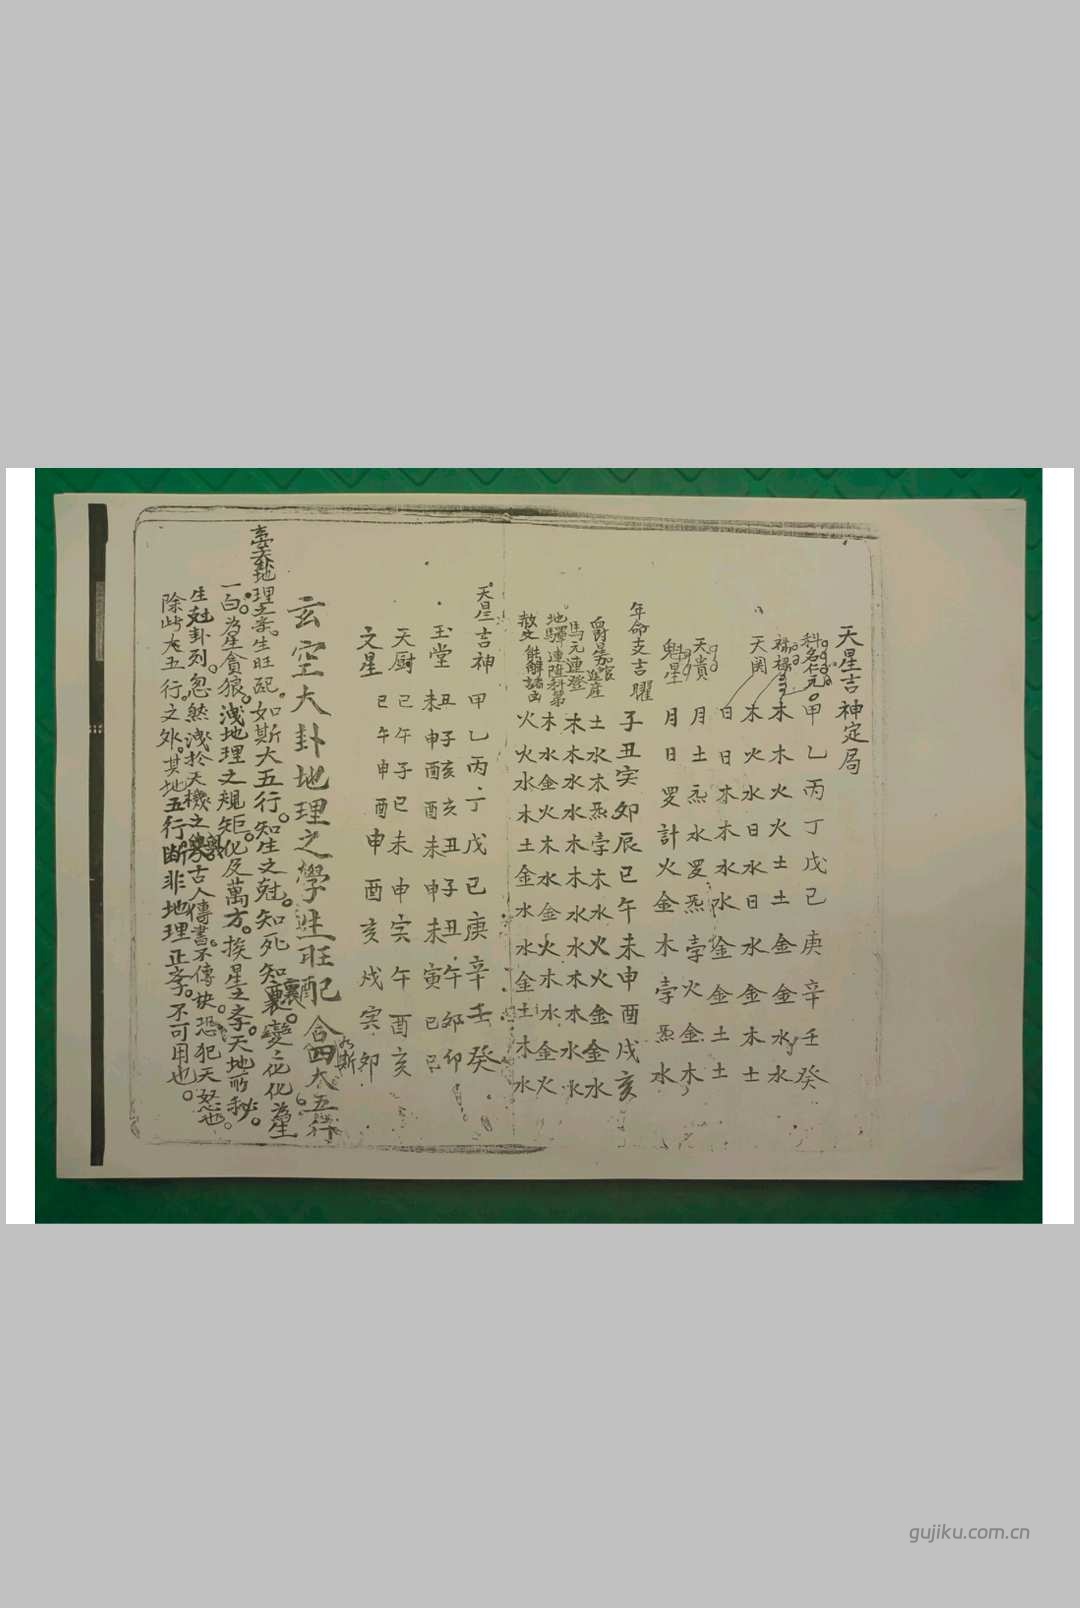 天星吉神定局
科名仁元 甲乙丙丁戊己庚辛壬癸
木木火火土土金金水水
天関 木火水日水日水金木土
日日木木水水金金土土
天貴 月土炁水罗炁孛火金木
魁星 月日罗計火金木孛炁水
年命支吉曜 子丑寅卯辰巳午未申酉戌亥
爵星 土水木炁孛木水火火金金水
馬元連登 木木水水木木水水木木水水
地驛連陞科第 木水金火木水金火木水金火
火火水木土金水水金土木水
天星吉神 甲乙丙丁戊己庚辛壬癸
玉堂 丑子亥亥丑子丑午卯卯
未申酉酉未申未寅巳巳
天厨 巳午子巳未申寅午酉亥
文星 巳午申酉申酉亥戌寅卯
玄空大卦地理之學生旺配合四大五行
地理之。生旺配。如斯大五行。知生之尅。知死知變化化為星
一白。為星貪狼。洩地理之規矩。化及萬方。挨星之。天地所秘。
生尅卦列。忽然洩於天機之古人傳書。不傳訣。恐犯天怒也。
除此大五行。之外。其地五行断非地理正。不可用也。
gujiku.com.cn